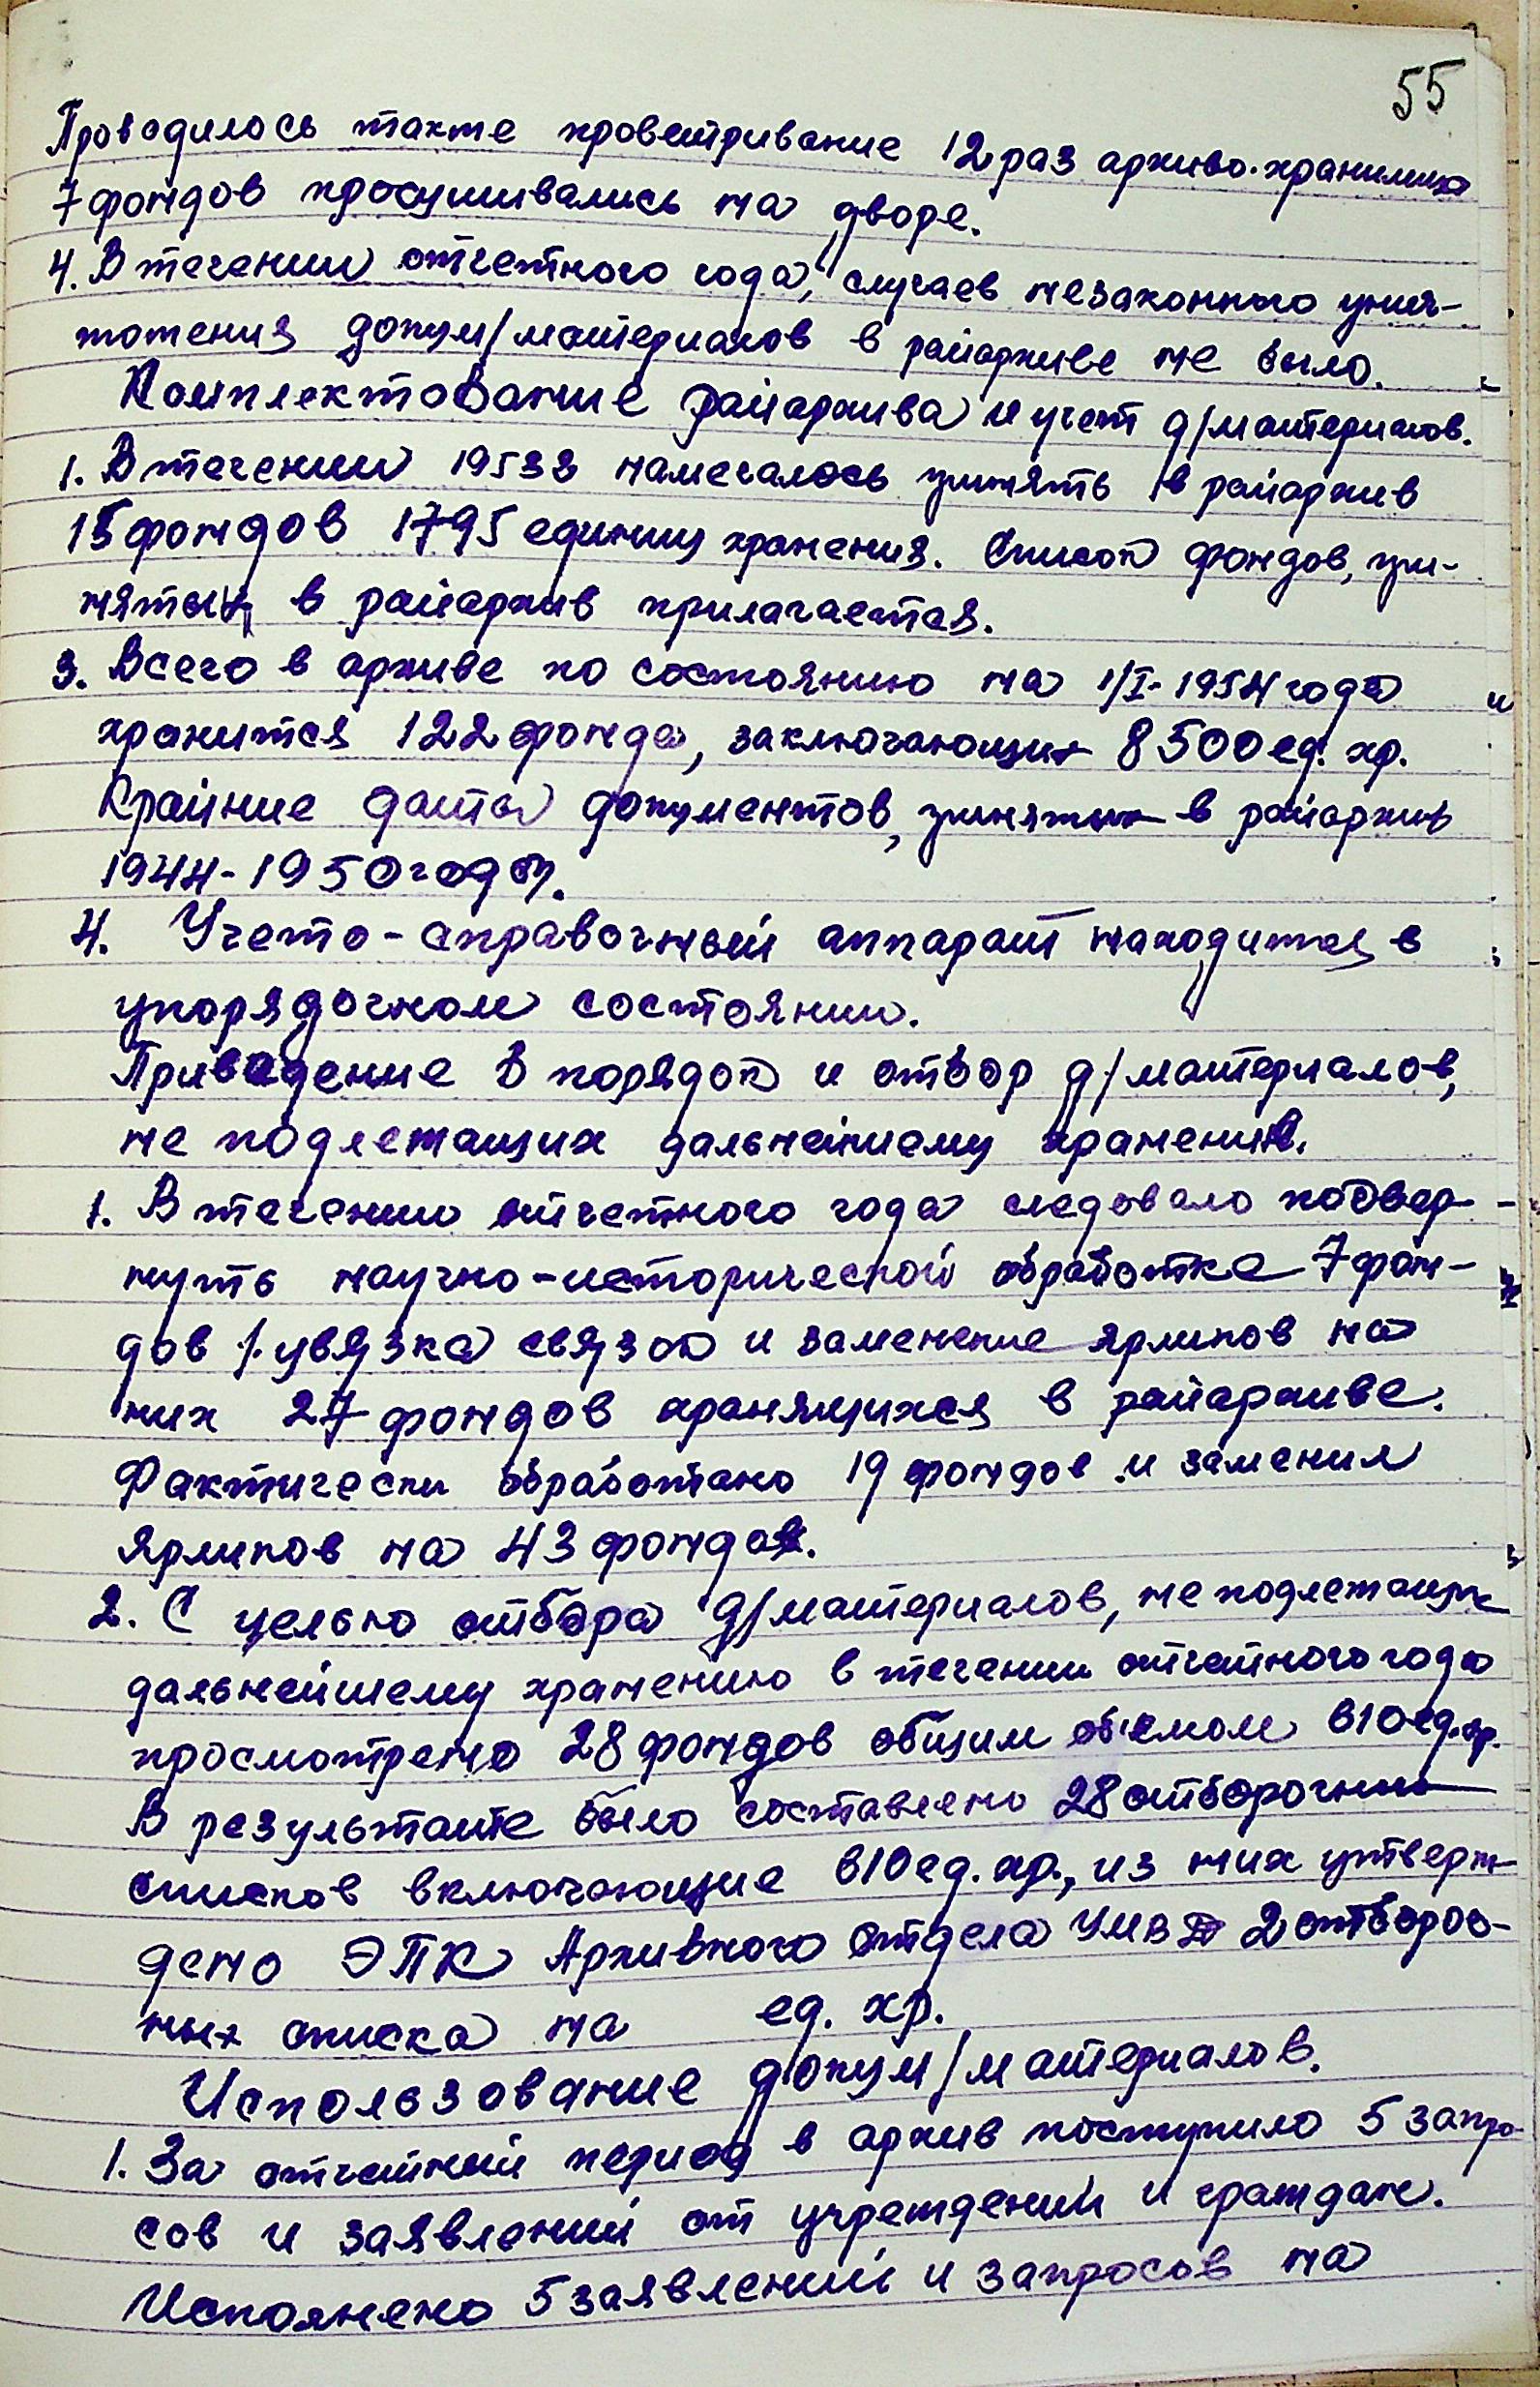 55
Проводилось также проветривание 12 раз архиво-хранилища
7 фондов просушивались на дворе.
4. В течении отчетного года, случаев незаконного унич-
тожения докум/материалов в райархиве не было.
Комплектование райархива и учет д/материалов.
1. В течении 1953г намечалось принять в райархив
15 фондов 1795 единиц хранения. Список фондов, при-
нятых в райархив прилагается.
3. Всего в архиве по состоянию на 1/I-1954 года
хранится 122 фонда, заключающих 8500 ед. хр.
Крайние даты документов, принятых в райархив
1944-1950 годы.
4. Учето-справочный аппарат находится в
упорядочном состоянии.
Приведение в порядок и отбор д/материалов,
не подлежащих дальнейшему хранению.
1. В течении отчетного года следовало подвер-
нуть научно-исторической обработке 7 фон-
дов /. увязка связок и заменение ярликов на
них 27 фондов хранящихся в райархиве.
Фактически обработано 19 фондов и заменил
ярликов на 43 фондов.
2. С целью отбора д/материалов, не подлежащих
дальнейшему хранению в течении отчетного года
просмотрено 28 фондов общим об'емом 810 ед. хр.
В результате было составлено 28 отборочных
списков включающие 810 ед. хр., из них утверж-
дено ЭПК Архивного отдела УМВД 2 отбороч-
ных списка на ед. хр.
Использование докум/материалов.
1. За отчетный период в архив поступило 5 запро-
сов и заявлений от учреждений и граждан.
Исполнено 5 заявлений и запросов на